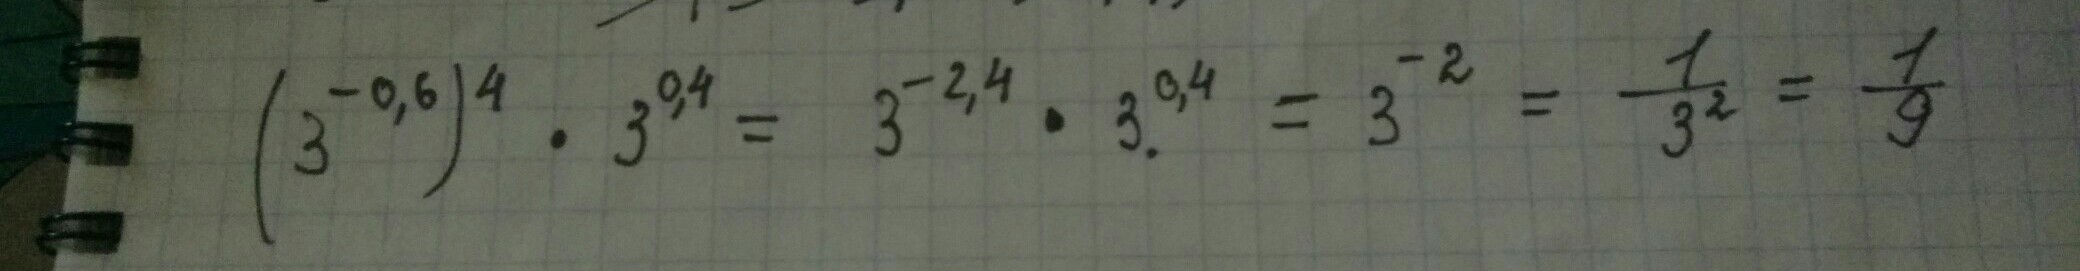 (3^{-0,6})^4 · 3^{0,4} = 3^{-2,4} · 3^{0,4} = 3^{-2} = \frac{1}{3^2} = \frac{1}{9}